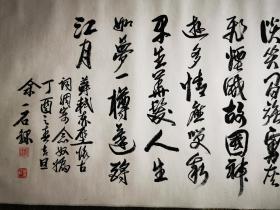 談笑間強虜灰
飛煙滅故國神
遊多情應笑我
早生華髮人生
如夢一樽還酹
江月
蘇軾赤壁懷古
詞調寄念奴嬌
丁酉之春吉旦
余一石録